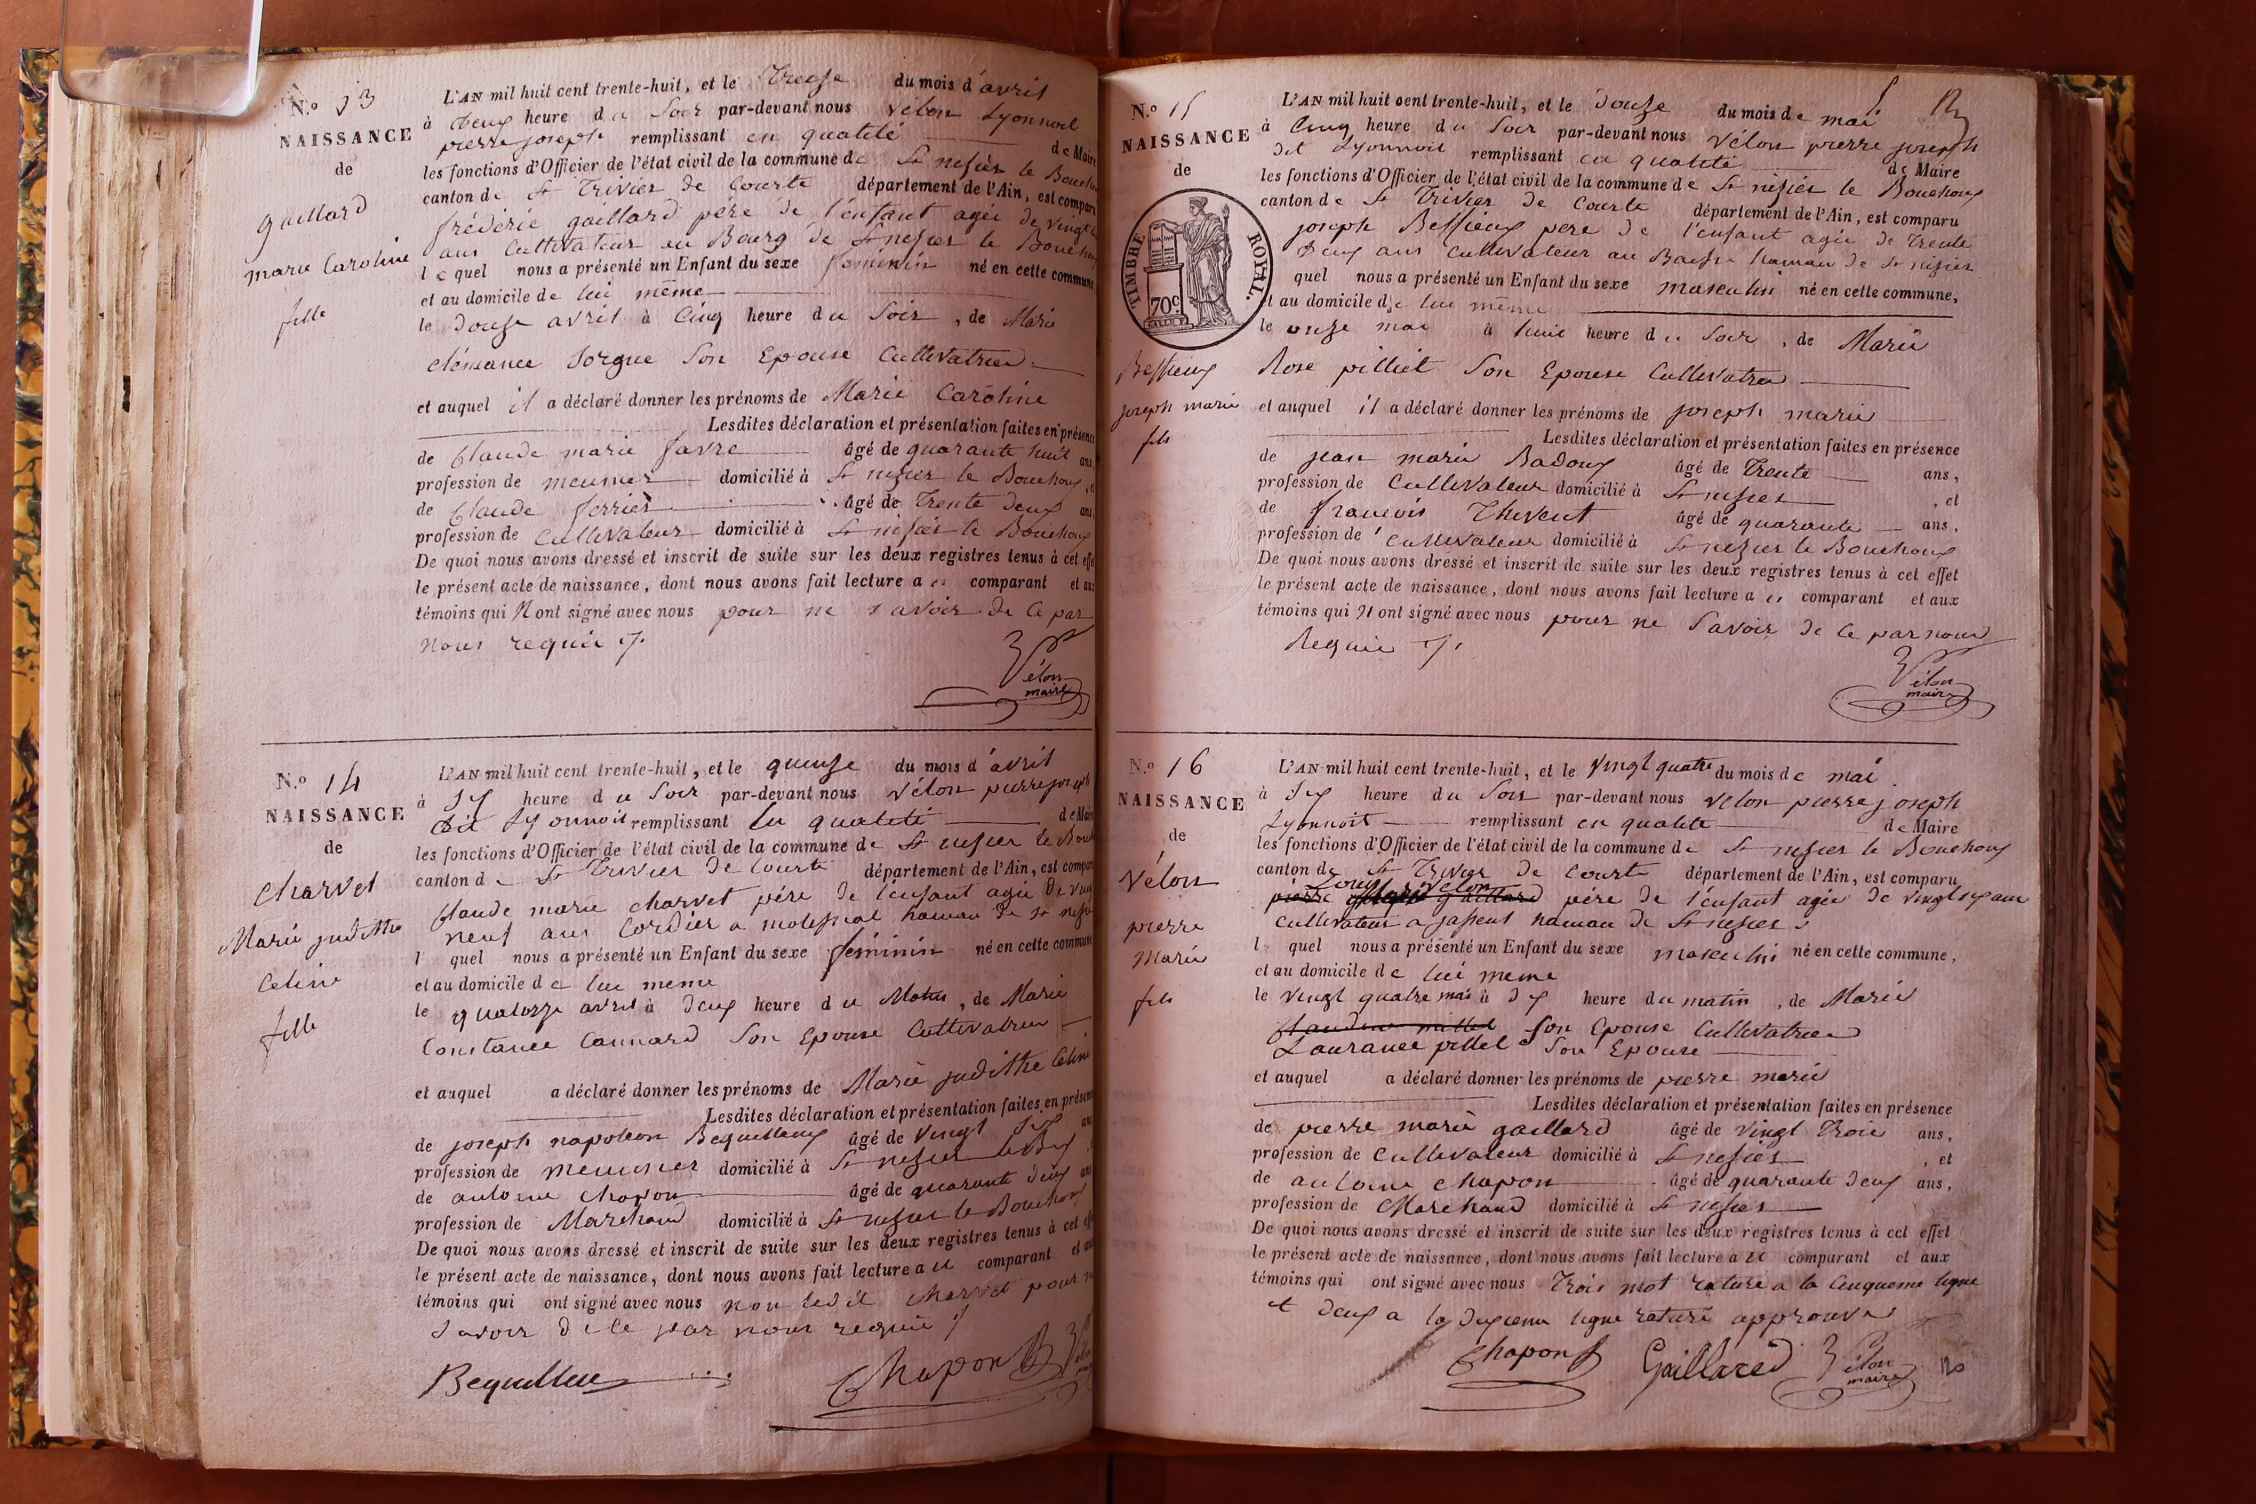 N.º 13
NAISSANCE
de
gaillard
marie Caroline
fille
L'AN mil huit cent trente-huit, et le Treize du mois d'avril
à deux heure du Soir par-devant nous vélon Lyonnoit
pierre joseph remplissant en qualité de Maire
les fonctions d'Officier de l'état civil de la commune de St nisier le Bouchoux
canton de St Trivier de Courte département de l'Ain, est comparu
frédéric gaillard pére de l'enfant agée de vingt
ans Cultivateur au Bourg de St nisier le Bouchoux
lequel nous a présenté un Enfant du sexe feminin né en cette commune
et au domicile de lui méme
le douze avril à Cinq heure du Soir, de Marie
clémance Sorgue Son Epouse Cultivatrice
et auquel il a déclaré donner les prénoms de Marie Caroline
Lesdites déclaration et présentation faites en présence
de Claude marie favre âgé de quarante huit ans
profession de meunier domicilié à St nisier le Bouchoux, et
de Claude ferrier âgé de Trente deux ans
profession de Cultivateur domicilié à St nisier le Bouchoux
De quoi nous avons dressé et inscrit de suite sur les deux registres tenus à cet effet
le présent acte de naissance, dont nous avons fait lecture a comparant et aux
témoins qui N ont signé avec nous pour ne savoir de ce par
nous requie
Vélon
maire
N.º 14
NAISSANCE
de
Charvet
Marie juditthe
Celine
fille
L'AN mil huit cent trente-huit, et le quinze du mois d'avril
à Six heure du Soir par-devant nous vélon pierre joseph
dit Lyonnoit remplissant la qualité de Maire
les fonctions d'Officier de l'état civil de la commune de St nisier le Bouch
canton de St Trivier de Courte département de l'Ain, est comparu
Claude marie charvet pére de l'enfant agée de vingt
neuf ans Cordier a molessiat hamau de St nisier
l quel nous a présenté un Enfant du sexe féminin né en cette commune
et au domicile de lui meme
le quatorze avril à deux heure du Matin, de Marie
Constance Cannard Son Epouse Cultivatrice
et auquel a déclaré donner les prénoms de Marie juditthe Celine
Lesdites déclaration et présentation faites en présence
de joseph napoleon Bequilleux âgé de Vingt Six ans
profession de meunier domicilié à St nisier le Bx
de antoine Chapon âgé de quarante deux ans
profession de Marchand domicilié à St nisier le Bouchoux
De quoi nous avons dressé et inscrit de suite sur les deux registres tenus à cet effet
le présent acte de naissance, dont nous avons fait lecture a comparant et aux
témoins qui ont signé avec nous non ledit Charvet pour ne
Savoir de ce par nous requie
Bequilleux
Chapon
N.º 15
NAISSANCE
de
TIMBRE ROYAL.
70c.
Bessieux
joseph marie
fils
L'AN mil huit cent trente-huit, et le douze du mois de mai
à Cinq heure du Soir par-devant nous vélon pierre joseph
dit Lyonnoit remplissant en qualité de Maire
les fonctions d'Officier de l'état civil de la commune de St nisier le Bouchoux
canton de St Trivier de Courte département de l'Ain, est comparu
joseph Bessieux pere de l'enfant agée de Trente
deux ans Cultivateur au hamau de St nisier
quel nous a présenté un Enfant du sexe masculin né en cette commune,
et au domicile de lui méme
le onze mai à huit heure du Soir, de Marie
Rose pilliet Son Epouse Cultivatrice
et auquel il a déclaré donner les prénoms de joseph marie
Lesdites déclaration et présentation faites en présence
de jean marie Badoux âgé de Trente ans,
profession de Cultivateur domicilié à St nisier, et
de francois Thevent âgé de quarante ans,
profession de Cultivateur domicilié à St nizier le Bouchoux
De quoi nous avons dressé et inscrit de suite sur les deux registres tenus à cet effet
le présent acte de naissance, dont nous avons fait lecture a comparant et aux
témoins qui N ont signé avec nous pour ne Savoir de ce par nous
Requie
Vélon
maire
N.º 16
NAISSANCE
de
Vélon
pierre
Marie
fils
L'AN mil huit cent trente-huit, et le vingt quatre du mois de mai
à Six heure du Soir par-devant nous vélon pierre joseph
Lyonnoit remplissant en qualité de Maire
les fonctions d'Officier de l'état civil de la commune de St nisier le Bouchoux
canton de St Trivier de Courte département de l'Ain, est comparu
Louis Vélon
pierre gaillard pére de l'enfant agée de vingt six ans
Cultivateur a jassent hamau de St nisier
l quel nous a présenté un Enfant du sexe masculin né en cette commune,
et au domicile de lui meme
le vingt quatre mai à dix heure du matin, de Marie
Claudine millet Son Epouse Cultivatrice
Laurance pillet Son Epouse
et auquel a déclaré donner les prénoms de pierre marie
Lesdites déclaration et présentation faites en présence
de pierre marie gaillard âgé de vingt Trois ans,
profession de Cultivateur domicilié à St nisier, et
de antoine chapon âgé de quarante deux ans,
profession de Marchand domicilié à St nisier
De quoi nous avons dressé et inscrit de suite sur les deux registres tenus à cet effet
le présent acte de naissance, dont nous avons fait lecture a comparant et aux
témoins qui ont signé avec nous Trois mot raturé a la Cinquieme ligne
et deux a la dixieme ligne raturé approuvés
Chapon Gaillared Vélon
maire